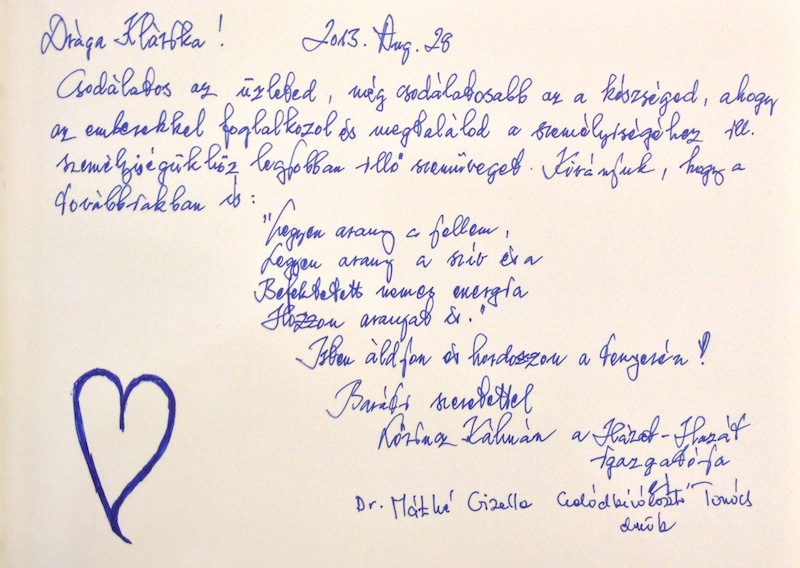 Drága Klárika! 2013. Aug. 28
Csodálatos az üzleted, még csodálatosabb az a készséged, ahogy
az emberekkel foglalkozol és megtalálod a személyiségéhez ill.
személyiségükhöz legjobban illő szemüveget. Kívánjuk, hogy a
továbbiakban is:
"Legyen arany a jellem,
Legyen arany a szív és a
Befektetett nemes energia
Hozzon aranyat is."
Isten áldjon és hordozzon a tenyerén!
Baráti szeretettel
Kálmán a Házat-Hazát
Igazgatója
Dr. Máthé Gizella Tanács
elnök